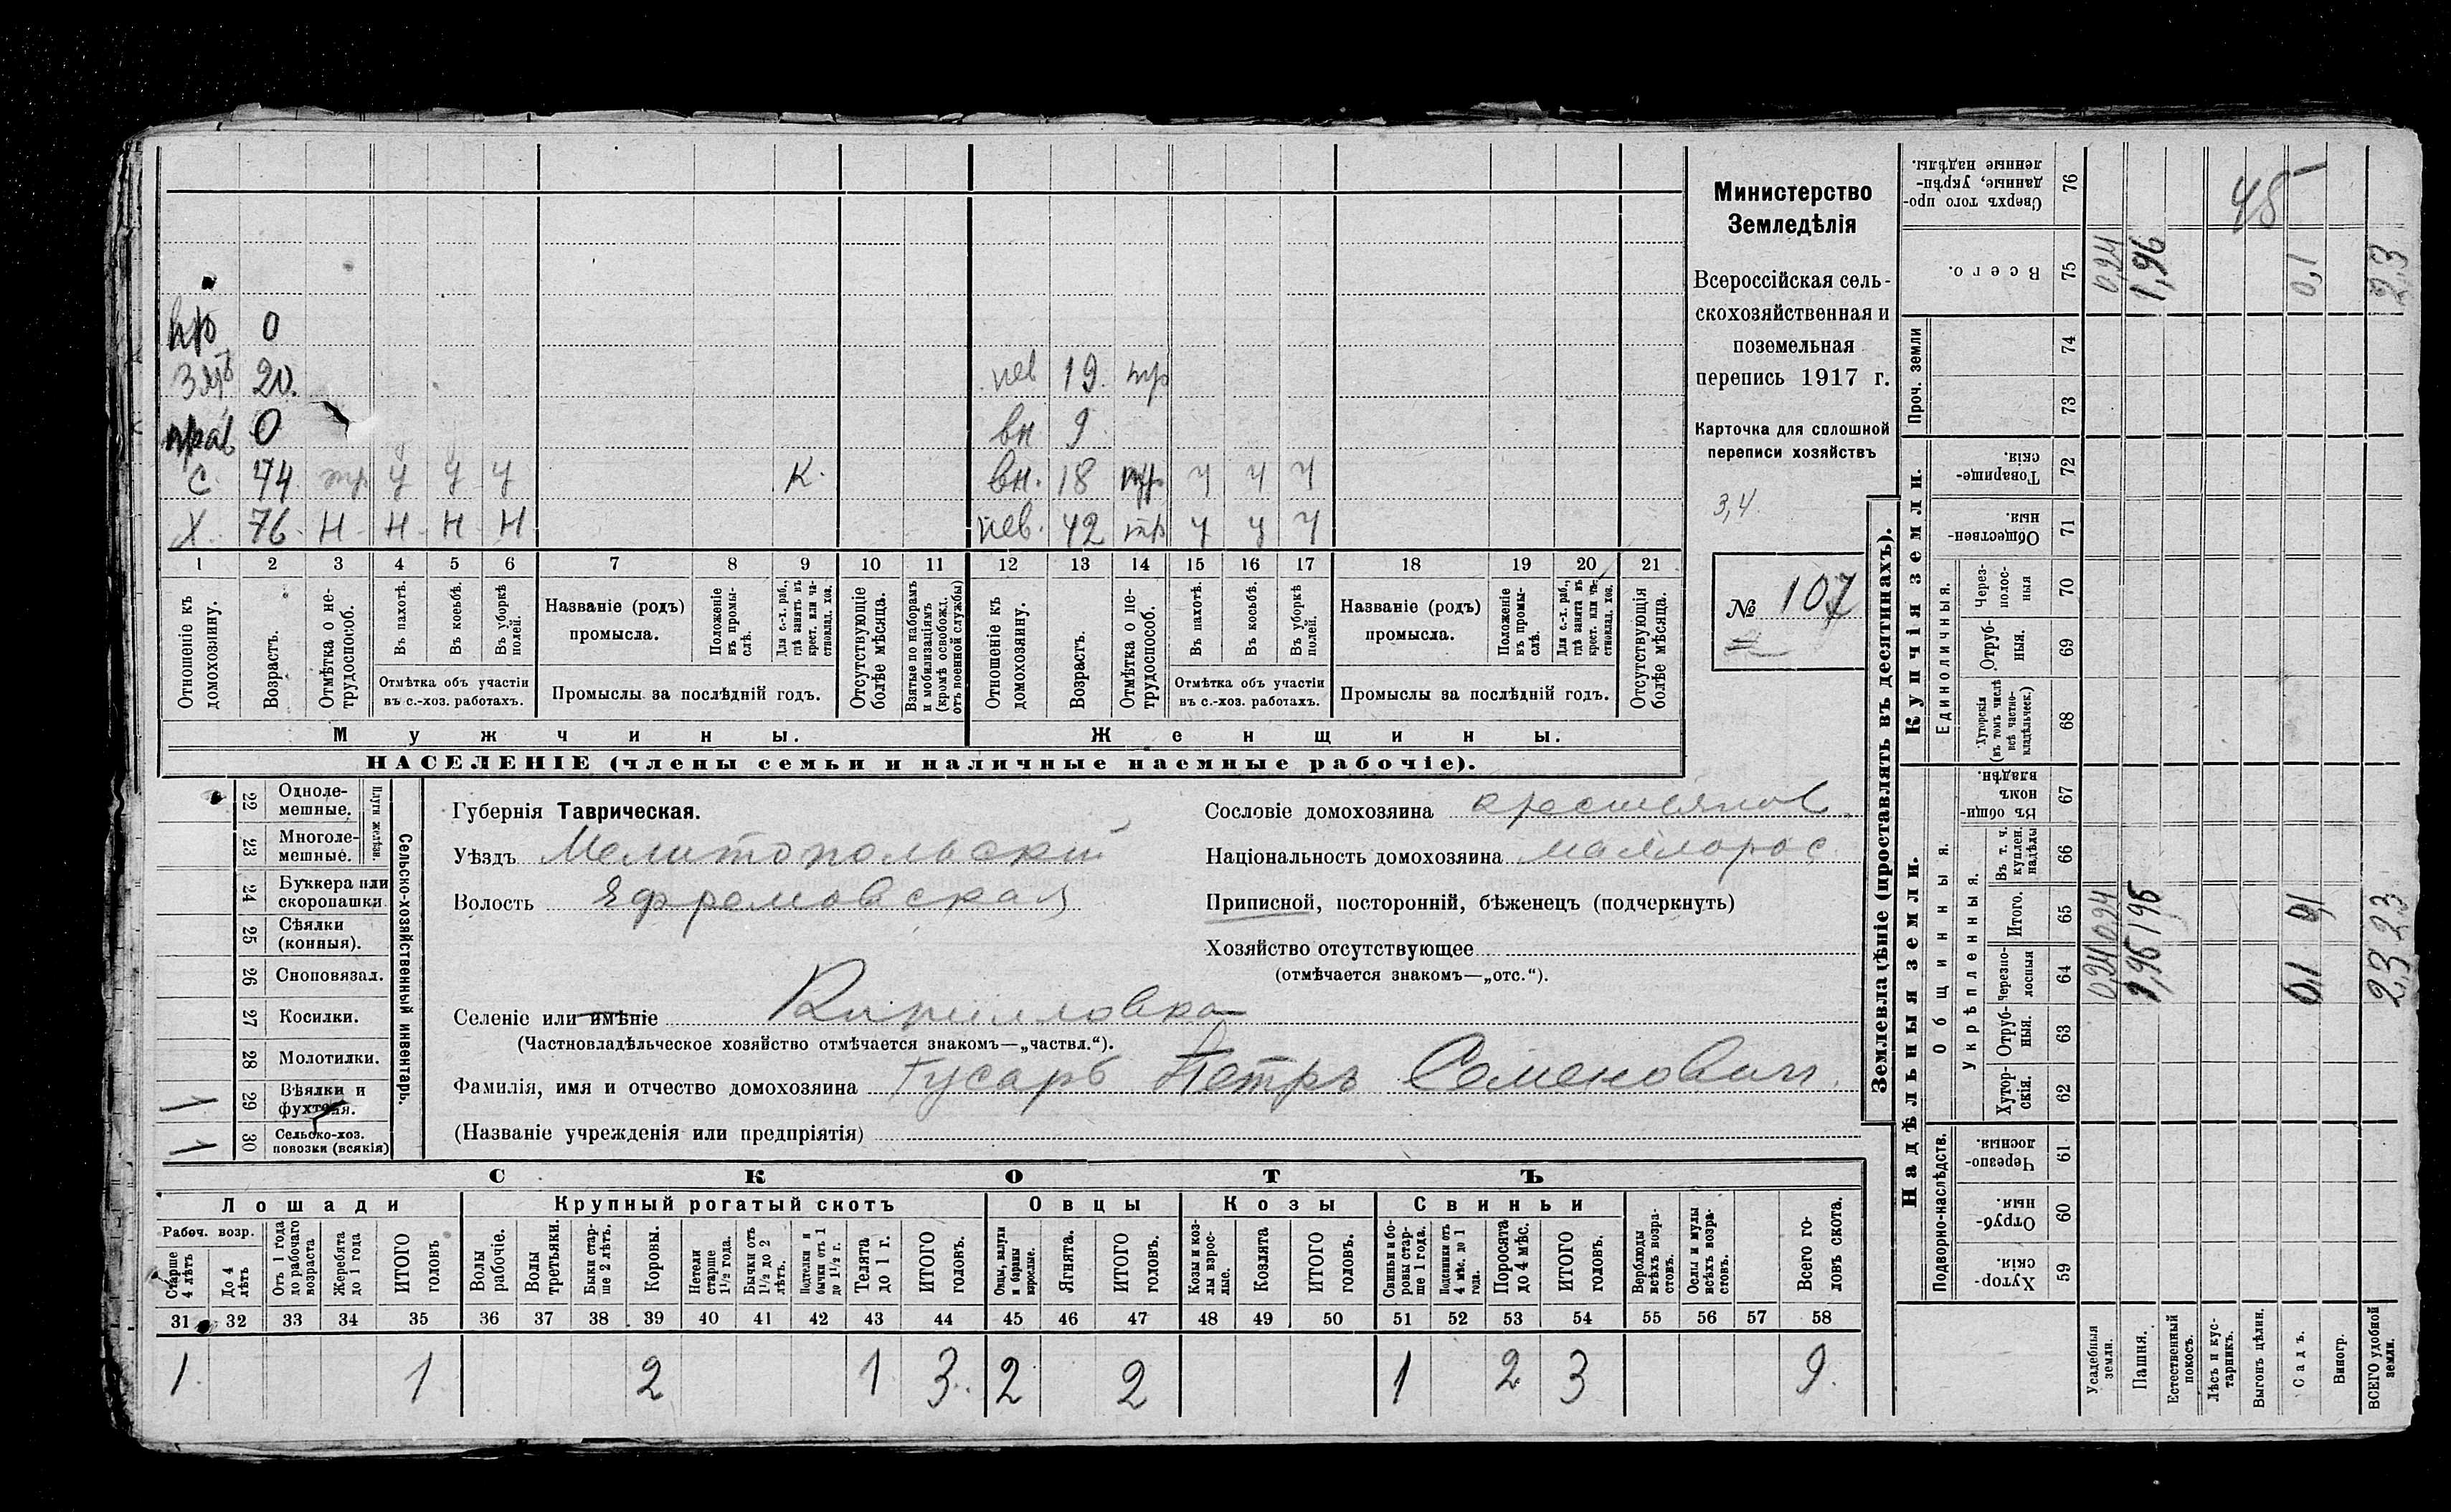 пр 0
Зять 20. нев 19. тр
прав 0 вн 9
С. 74 тр у у у К. вн. 18 тр у у у
Х. 76. Н Н Н Н нев. 42 тр у у у
1 2 3 4 5 6 7 8 9 10 11 12 13 14 15 16 17 18 19 20 21
Отношеніе къ домохозяину.
Возрастъ.
Отмѣтка о не-
трудоспособ.
Въ пахотѣ.
Въ косьбѣ.
Въ уборкѣ полей.
Отмѣтка объ участіи
въ с.-хоз. работахъ.
Названіе (родъ)
промысла.
Положеніе
въ промы-
слѣ.
Для с.-х. раб.,
гдѣ занятъ въ
крест. или ча-
стновлад. хоз.
Промыслы за послѣдній годъ.
Отсутствующіе
болѣе мѣсяца.
Взятые по наборамъ
и мобилизаціямъ
(кромѣ освобожд.
отъ военной службы)
Отношеніе къ
домохозяину.
Возрастъ.
Отмѣтка о не-
трудоспособ.
Въ пахотѣ.
Въ косьбѣ.
Въ уборкѣ
полей.
Отмѣтка объ участіи
въ с.-хоз. работахъ.
Названіе (родъ)
промысла.
Положеніе
въ промы-
слѣ.
Для с.-х. раб.,
гдѣ занята въ
крест. или ча-
стновлад. хоз.
Промыслы за послѣдній годъ.
Отсутствующія
болѣе мѣсяца.
Мужчины.
Женщины.
НАСЕЛЕНІЕ (члены семьи и наличные наемные рабочіе).
Министерство
Земледѣлія
Всероссійская сель-
скохозяйственная и
поземельная
перепись 1917 г.
Карточка для сплошной
переписи хозяйствъ
3,4.
№ 107
22 Одноле-
мешные.
23 Многоле-
мешные.
Плуги желѣзн.
24 Буккера или
скоропашки
25 Сѣялки
(конныя).
26 Сноповязал.
27 Косилки.
28 Молотилки.
1 29 Вѣялки и
фухтеля.
1 30 Сельско-хоз.
повозки (всякія)
Сельско-хозяйственный инвентарь.
Губернія Таврическая.
Уѣздъ Мелитопольскій
Волость Ефремовская
Селеніе или имѣніе Кирилловка
(Частновладѣльческое хозяйство отмѣчается знакомъ—„частвл.“).
Фамилія, имя и отчество домохозяина Гусаръ Петръ Семеновичъ
(Названіе учрежденія или предпріятія)
Сословіе домохозяина крестьянов
Національность домохозяина маллорос
Приписной, посторонній, бѣженецъ (подчеркнуть)
Хозяйство отсутствующее
(отмѣчается знакомъ—„отс.“).
СКОТЪ
Лошади
Крупный рогатый скотъ
Овцы
Козы
Свиньи
Рабоч. возр.
Старше
4 лѣтъ
До 4
лѣтъ
Отъ 1 года
до рабочаго
возраста
Жеребята
до 1 года
ИТОГО
головъ
Волы
рабочіе.
Волы
третьяки.
Быки стар-
ше 2 лѣтъ.
Коровы.
Нетели
старше
1½ года.
Бычки отъ
1½ до 2
лѣтъ.
Подтелки и
бычки отъ 1
до 1½ г.
Телята
до 1 г.
ИТОГО
головъ.
Овцы, валухи
и бараны
взрослые.
Ягнята.
ИТОГО
головъ.
Козы и коз-
лы взрос-
лые.
Козлята
ИТОГО
головъ.
Свиньи и бо-
ровы стар-
ше 1 года.
Подсвинки отъ
4 мѣс. до 1
года.
Поросята
до 4 мѣс.
ИТОГО
головъ.
Верблюды
всѣхъ возра-
стовъ.
Ослы и мулы
всѣхъ возра-
стовъ.
Всего го-
ловъ скота.
31 32 33 34 35 36 37 38 39 40 41 42 43 44 45 46 47 48 49 50 51 52 53 54 55 56 57 58
1. 1 2 1 3. 2 2 1 2 3 9.
Землевладѣніе (проставлять въ десятинахъ).
Надѣльныя земли.
Купчія земли.
Проч. земли
Подворно-наслѣдств.
Общинныя.
Укрѣпленныя.
Единоличныя.
59 Хутор-
скія.
60 Отруб-
ныя.
61 Черезпо-
лосныя.
62 Хутор-
скія.
63 Отруб-
ныя.
64 Черезпо-
лосныя
65 Итого.
66 Въ т. ч.
куплен.
надѣлы
67 Въ общи-
номъ
владѣн.
68 Хуторскія
(въ томъ числѣ
всѣ частно-
владѣльческ.)
69 Отруб-
ныя.
70 Через-
полос-
ныя
71 Обществен-
ныя.
72 Товарище-
скія.
73
74
75 Всего.
76 Сверхъ того про-
данные, укрѣп-
ленные надѣлы.
Усадебныя
земли. 0,24 0,24 0,24
Пашня. 1,96 1,96 1,96
Естественный
покосъ.
Лѣсъ и кус-
тарникъ.
Выгонъ цѣлин.
Садъ. 0,1 0,1 0,1
Виногр.
ВСЕГО удобной
земли. 2,3 2,3 2,3
48